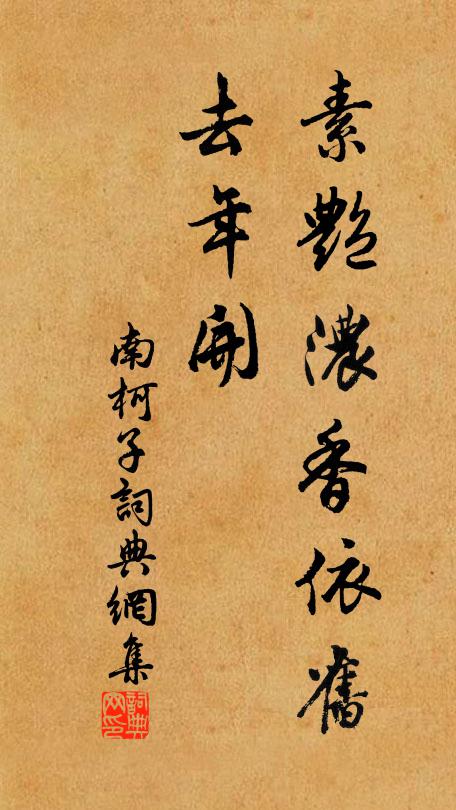 素艷濃香依舊
去年開
南柯子詞典網集
詞典
网印